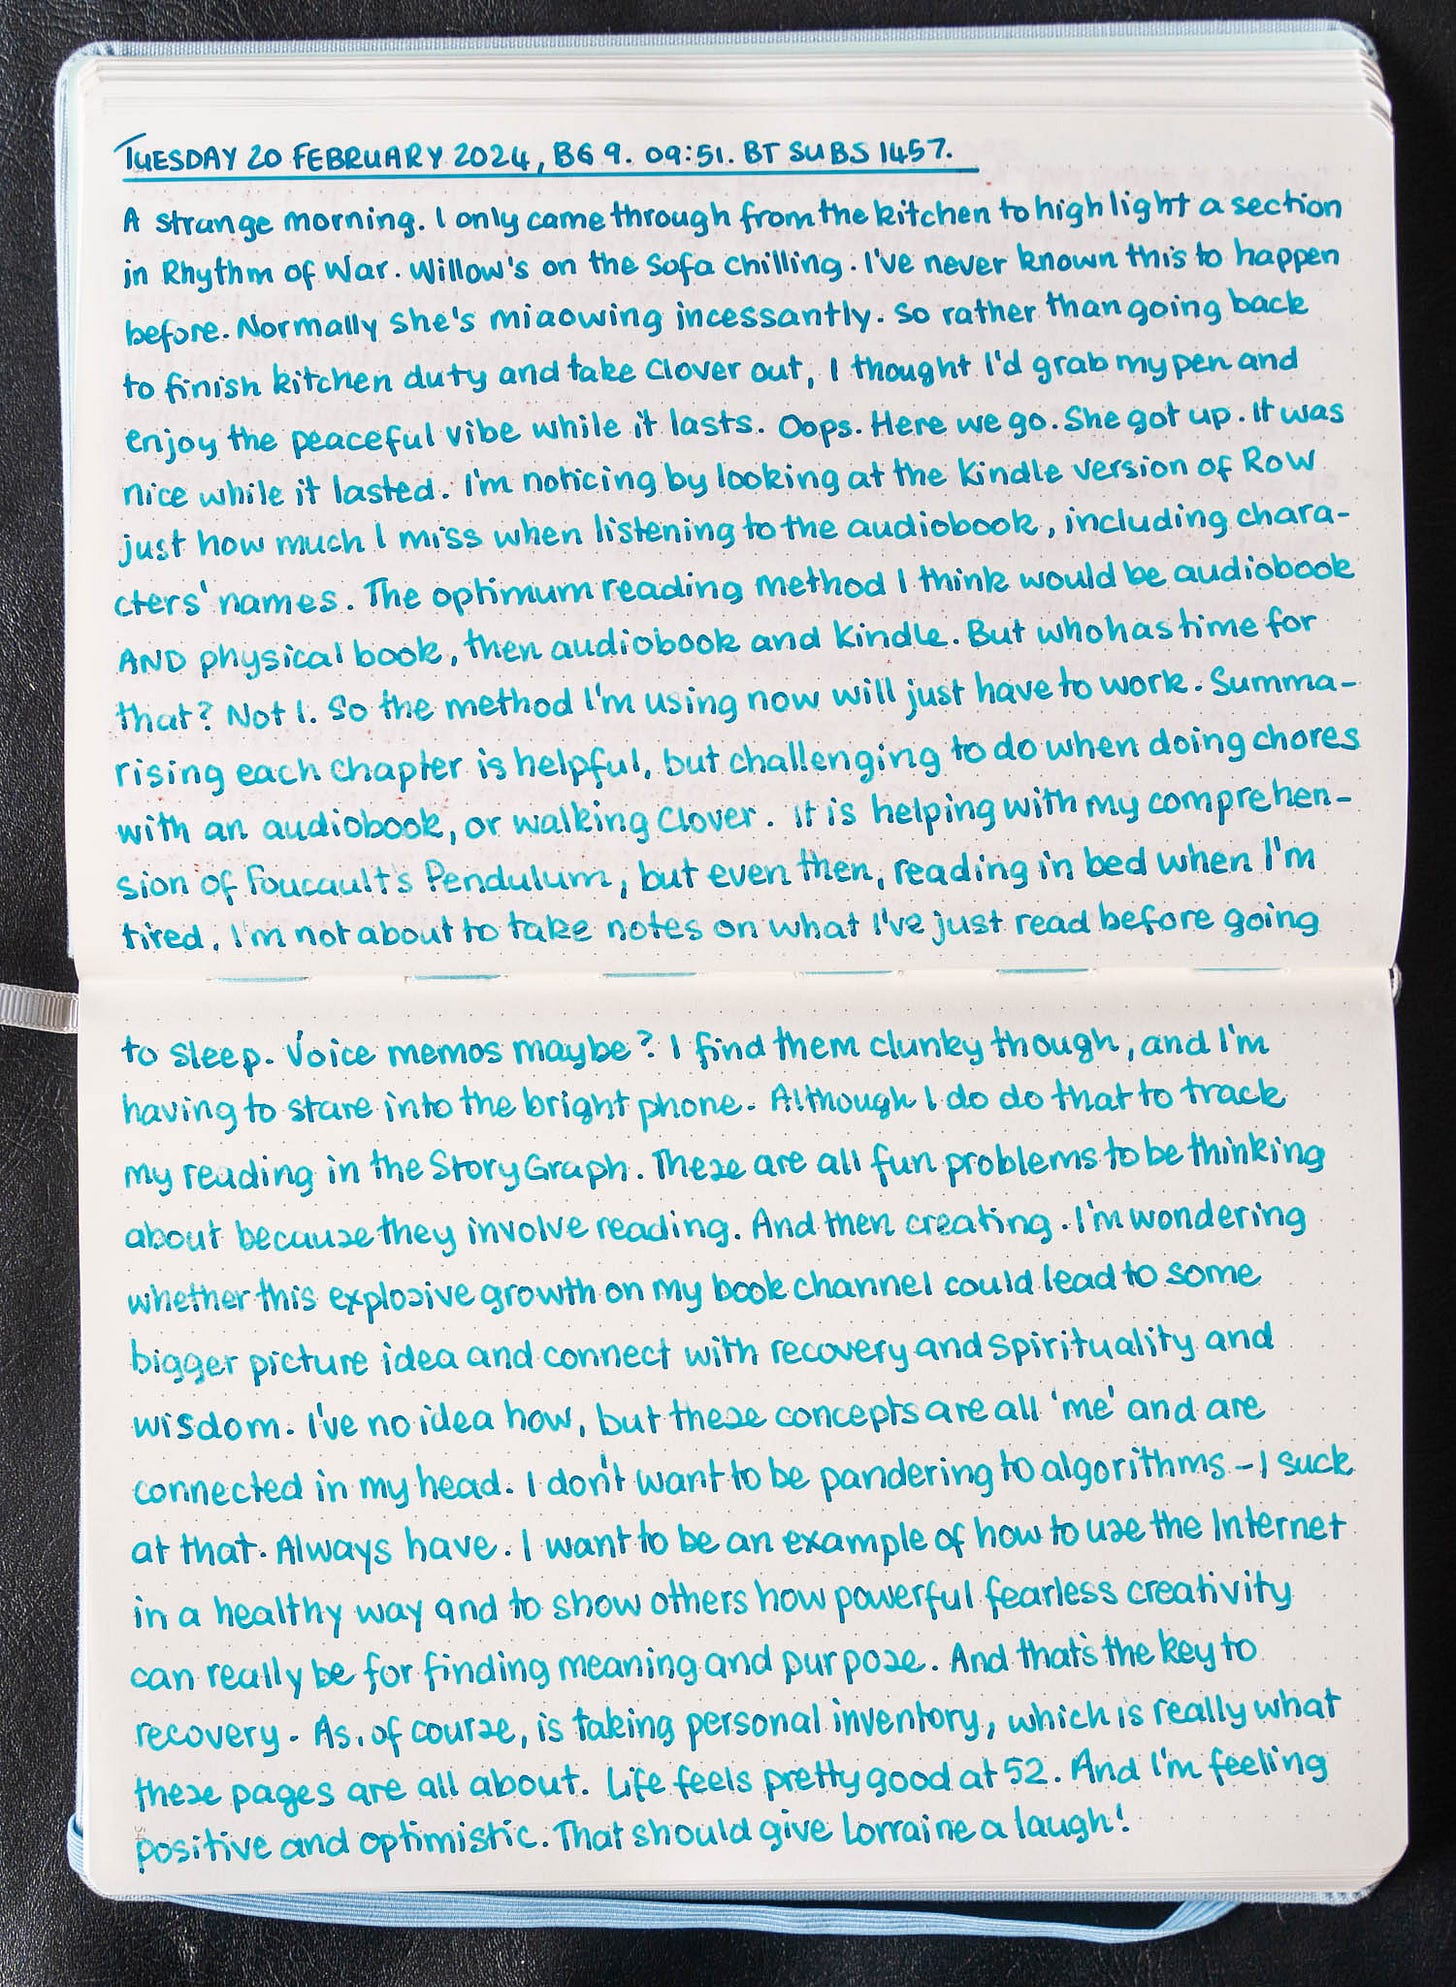 TUESDAY 20 FEBRUARY 2024, BG 9. 09:51. BT SUBS 1457.
A strange morning. I only came through from the kitchen to highlight a section
in Rhythm of War. Willow's on the sofa chilling. I've never known this to happen
before. Normally she's miaowing incessantly. So rather than going back
to finish kitchen duty and take Clover out, I thought I'd grab my pen and
enjoy the peaceful vibe while it lasts. Oops. Here we go. She got up. It was
nice while it lasted. I'm noticing by looking at the Kindle version of RoW
just how much I miss when listening to the audiobook, including chara-
cters' names. The optimum reading method I think would be audiobook
AND physical book, then audiobook and Kindle. But who has time for
that? Not I. So the method I'm using now will just have to work. Summa-
rising each chapter is helpful, but challenging to do when doing chores
with an audiobook, or walking Clover. It is helping with my comprehen-
sion of Foucault's Pendulum, but even then, reading in bed when I'm
tired, I'm not about to take notes on what I've just read before going
to sleep. Voice memos maybe? I find them clunky though, and I'm
having to stare into the bright phone. Although I do do that to track
my reading in the StoryGraph. These are all fun problems to be thinking
about because they involve reading. And then creating. I'm wondering
whether this explosive growth on my book channel could lead to some
bigger picture idea and connect with recovery and spirituality and
wisdom. I've no idea how, but these concepts are all 'me' and are
connected in my head. I don't want to be pandering to algorithms – I suck
at that. Always have. I want to be an example of how to use the Internet
in a healthy way and to show others how powerful fearless creativity
can really be for finding meaning and purpose. And that's the key to
recovery. As, of course, is taking personal inventory, which is really what
these pages are all about. Life feels pretty good at 52. And I'm feeling
positive and optimistic. That should give Lorraine a laugh!